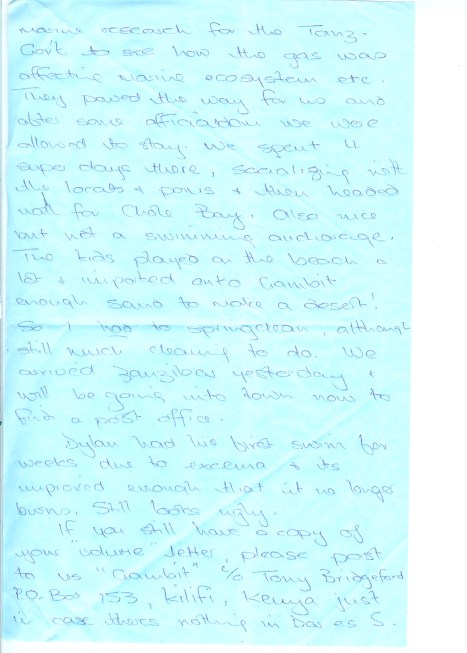 marine research for the Tanz.
Gov't to see how the gas was
affecting marine ecosystem etc.
They paved the way for us and
after some officialdom we were
allowed to stay. We spent 4
super days there, socializing with
the locals & & then headed
north for Chole Bay. Also nice
but not a swimming anchorage.
The kids played on the beach a
lot & imported onto Gambit
enough sand to make a desert!
So I had to springclean, although
still much cleaning to do. We
arrived Zanzibar yesterday &
will be going into town now to
find a post office.
Dylan had his first swim for
weeks due to excema & its
improved enough that it no longer
burns. Still looks ugly.
If you still have a copy of
your "volume" letter, please post
to us "Gambit" c/o Tony Bridgeford
P.O. Box 153, Kilifi, Kenya just
in case theres nothing in Dar es S.